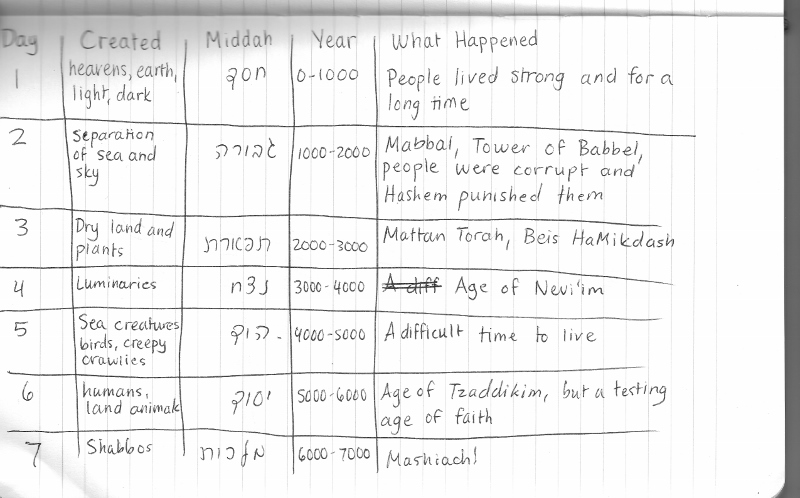 Day Created Middah Year What Happened
1 heavens, earth, light, dark חסד 0-1000 People lived strong and for a
long time
2 Separation
of sea and
sky גבורה 1000-2000 Mabbal, Tower of Babbel,
people were corrupt and
Hashem punished them
3 Dry land and
plants תפארת 2000-3000 Mattan Torah, Beis HaMikdash
4 Luminaries נצח 3000-4000 A diff Age of Nevi'im
5 Sea creatures
birds, creepy
crawlies הוד 4000-5000 A difficult time to live
6 humans,
land animals יסוד 5000-6000 Age of Tzaddikim, but a testing
age of faith
7 Shabbos מלכות 6000-7000 Mashiach!